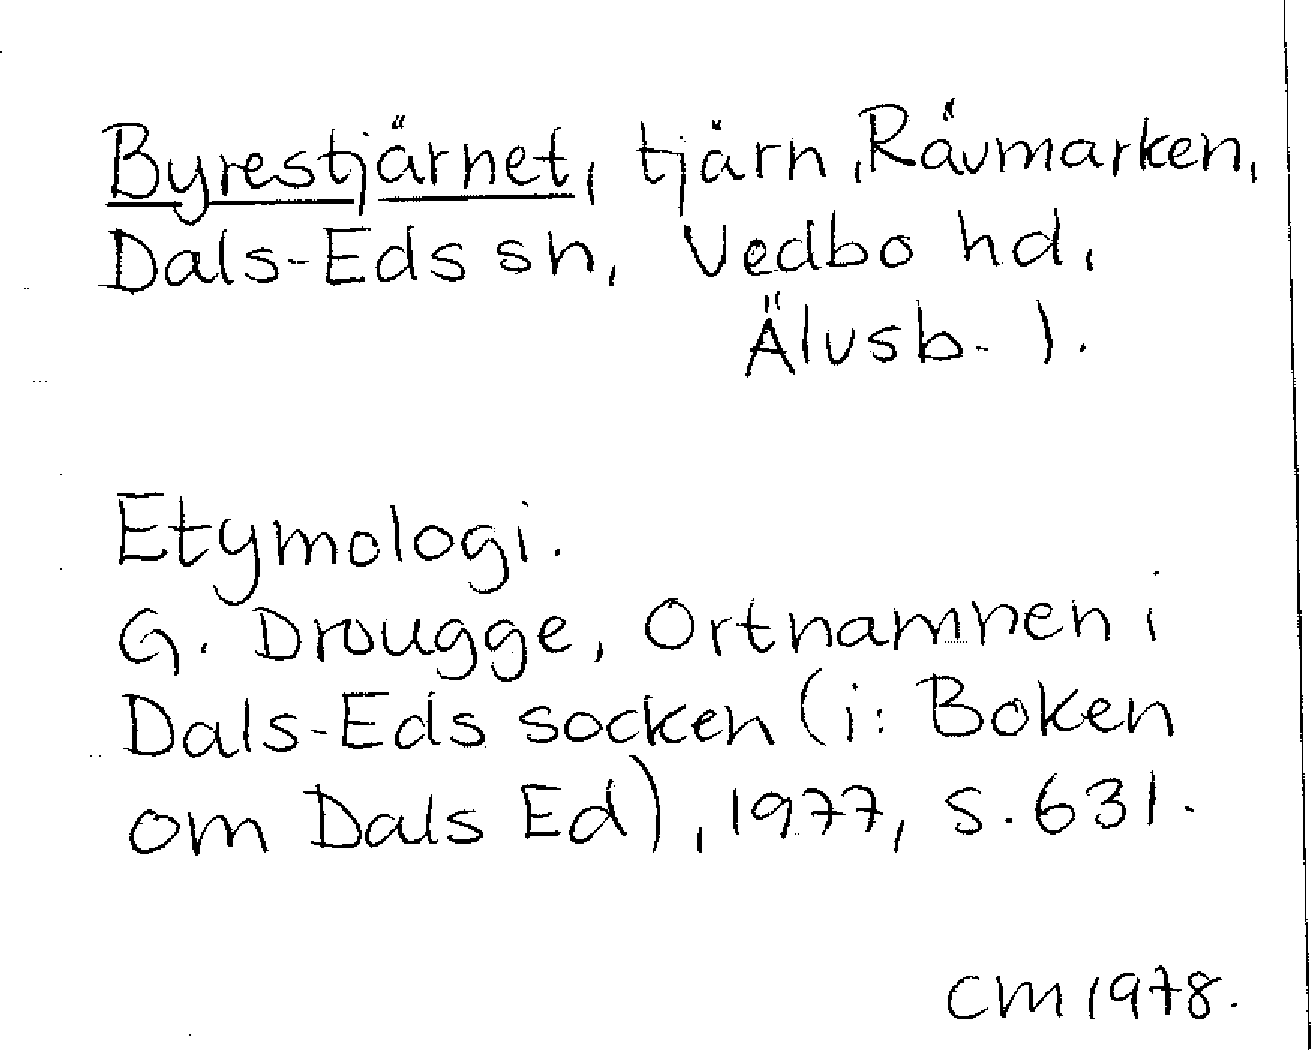 Byrestjärnet, tjärn, Rävmarken,
Dals-Eds sn, Vedbo hd,
Älvsb. l.
Etymologi.
G. Drougge, Ortnamnen i
Dals-Eds socken (i: Boken
om Dals Ed), 1977, s. 631.
CM 1978.